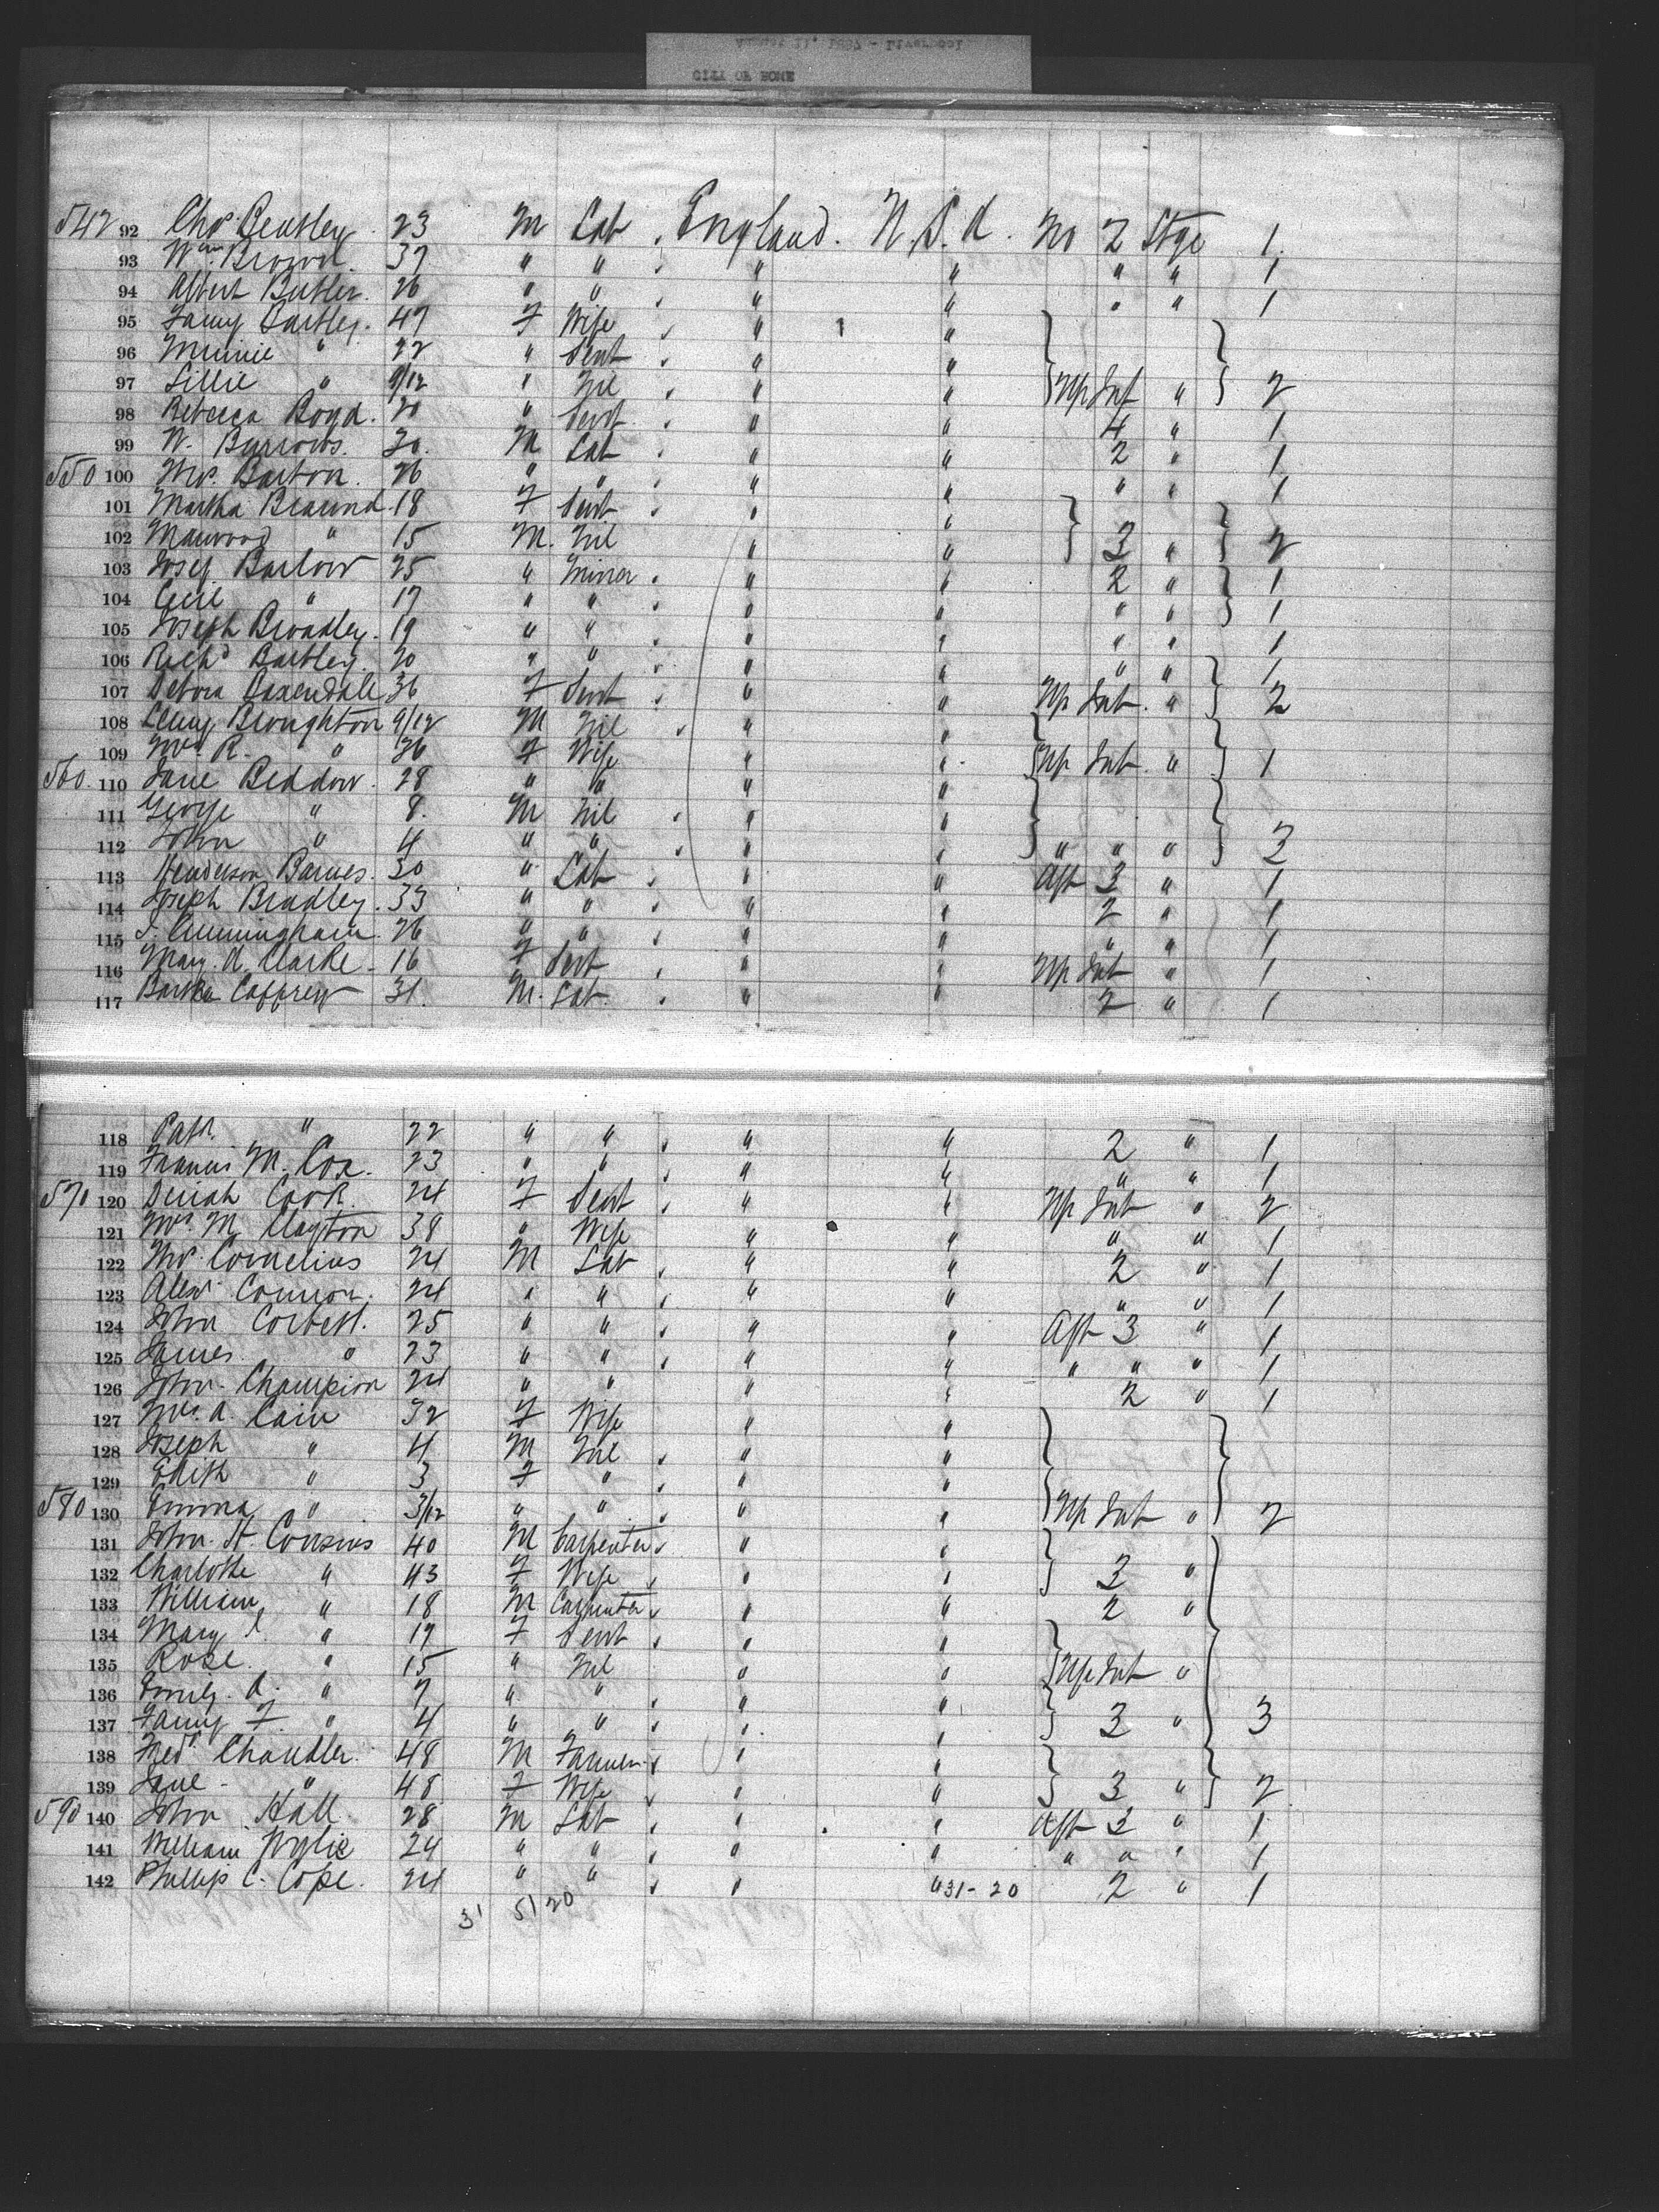 August 11, 1887 - Liverpool
CITY OF ROME
542 92 Chas. Beatley 23 M Lab England. U.S.A. No 2 Stge 1
93 Wm. Brown 37 " " " " " " 1
94 Albert Butler. 26 " " " " " " 1
95 Fanny Bartley. 47 F Wife " 1 "
96 Minnie " 22 " Servt " "
97 Lillie " 9/12 " Nil " " Up Int " 2
98 Rebecca Boyd. 20 " Servt " " 4 " 1
99 W. Burrows. 30. M Lab " " 2 " 1
550 100 Wm. Barton. 26 " " " " " " 1
101 Martha Braund 18 F Servt " "
102 " 15 M. Nil " " 3 " 2
103 Josef Barlow 25 " Miner " " 2 " 1
104 Cecil " 17 " " " " " " 1
105 Joseph Broadley. 19 " " " " " " 1
106 Richd Bartley 20 " " " " " " 1
107 Debora Baxendale 36 F Servt " " Up Int. " 2
108 Broughton 9/12 M Nil " "
109 Mrs. R. " 26 F Wife " " Up Int. " 1
560. 110 Jane Beddow. 28 " " " "
111 George " 8. M Nil " "
112 John " 4 " " " " " " " 2
113 Henderson Barnes. 30 " Lab " " Aft 3 " 1
114 Joseph Bradley. 33 " " " " 2 " 1
115 J. Cunningham. 26 " " " " " " 1
116 Mary A. Clarke - 16 F Servt " " Up Int " 1
117 Caffrey 31. M. Lab. " " 2 " 1
118 Patk. " 22 " " " " 2 " 1
119 Francis M. Cox. 23 " " " " " " 1
570 120 Cook 24 F Servt " " Up Int " 2
121 Mrs. M Clayton 38 " Wife " " " " 1
122 Cornelius 24 M Lab " " 2 " 1
123 Alexr. Connor. 24 " " " " " " 1
124 John Corbett. 25 " " " " Aft 3 " 1
125 James " 23 " " " " " " " 1
126 John. Champion 24 " " " " 2 " 1
127 Mrs. A. Cain 32 F Wife " "
128 Joseph " 4 M Nil " "
129 Edith " 3 F " " "
580 130 Emma " 3/12 " " " " Up Int " 2
131 John. H. Cousins 40 M Carpenter " "
132 Charlotte " 43 F Wife " " 3 "
133 William " 18 M Carpenter " " 2 "
134 Mary " 17 F Servt " "
135 Rose. " 15 " Nil " " Up Int "
136 Emily. A. " 7 " " " "
137 Fanny F. " 4 " " " " 3 " 3
138 Fredk. Chandler. 48 M Farmer " "
139 Jane - " 48 F Wife " " 3 " 2
590 140 John Hall. 28 M Lab " " Aft 3 " 1
141 William Wylie 24 " " " " " " " 1
142 Phillip C. Cope. 24 " " " " 31-20 2 " 1
31 51 20